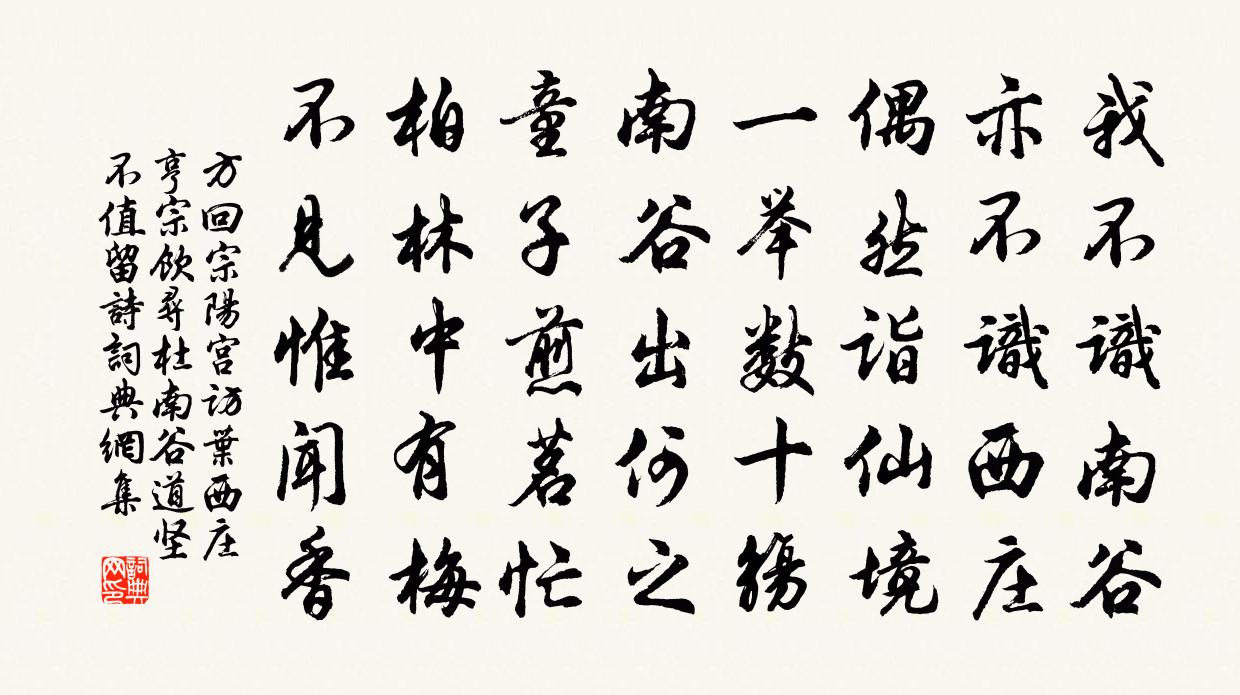 我不識南谷
亦不識西庄
偶然诣仙境
一举数十觞
南谷出何之
童子煎茗忙
柏林中有梅
不见惟闻香
方回宗陽宫访葉西庄
亨宗飲尋杜南谷道坚
不值留詩詞典網集
詞典
网印